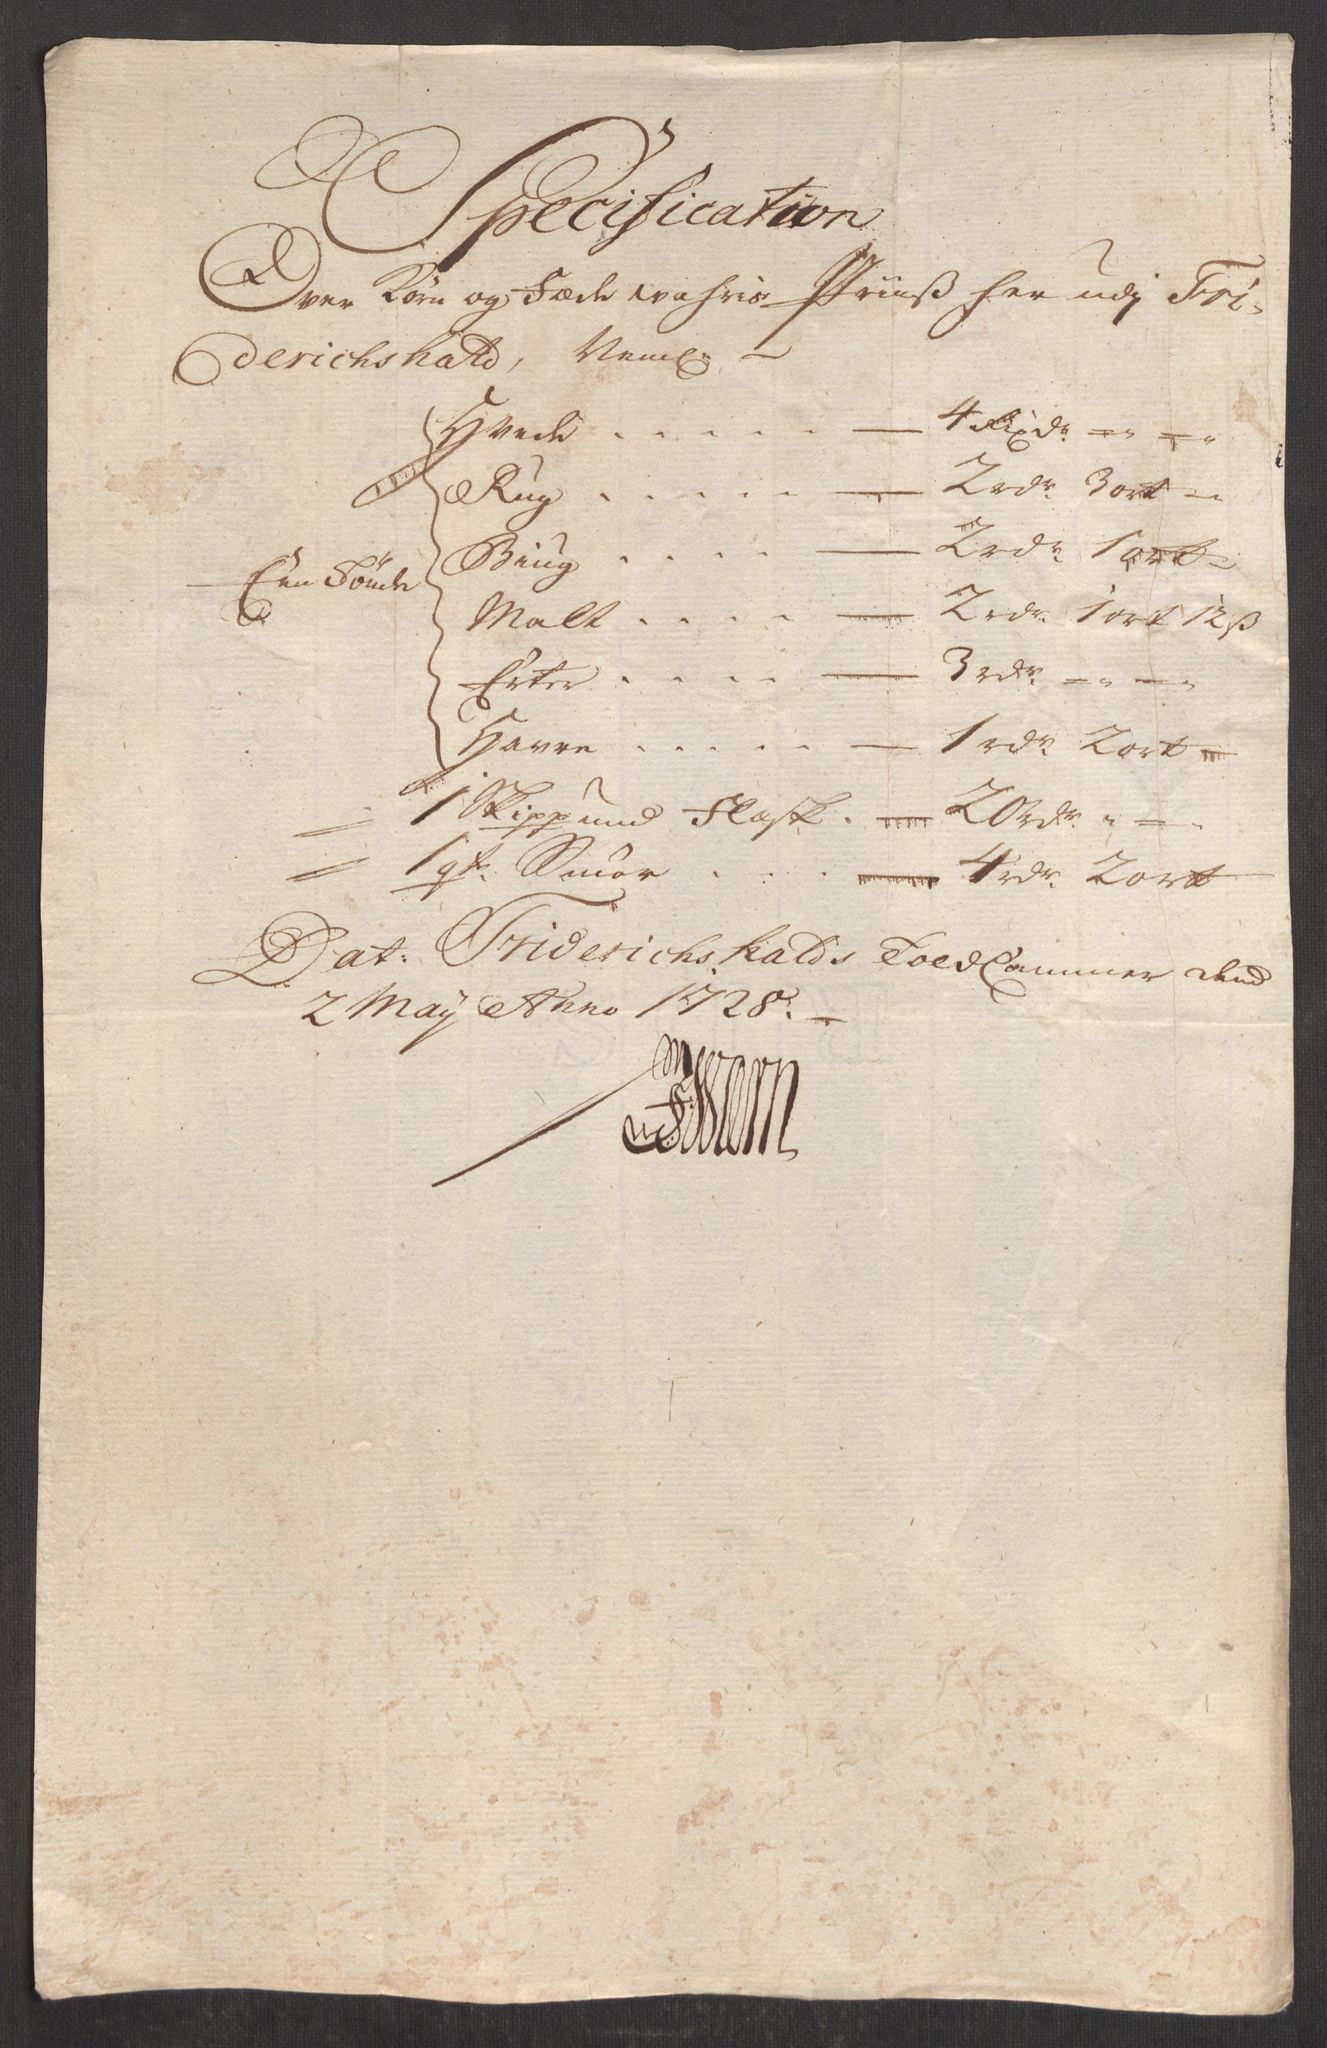 Specification
Over Korn og Fæde wahris Priiß her udj Fri-
derichshald, Neml:
Hvede . . . . . — 4 Rixdr
Rug . . . . . — 2 rdr. 3 ort
Biug . . . . — 2 rdr. 1 ort
Een Tönde
Malt . . . . — 2 rdr. 1 ort 12 ß
Erter . . . . — 3 rdr.
Havre . . . . . — 1 rdr 2 ort
1 Skippund Flæsk . — 20 rdr.
1 Smör . . . — 4 rdr. 2 ort
Dat. Friderichshalds Told Cammer dend
2 May Anno 1728.